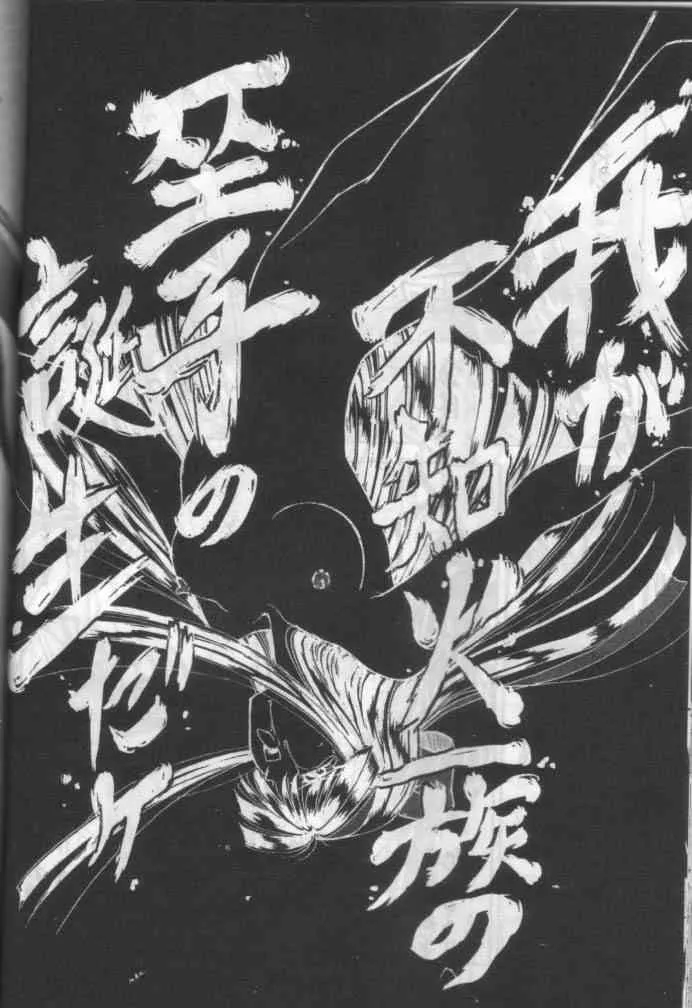 我が
不知火一族の
巫子の
誕生だ